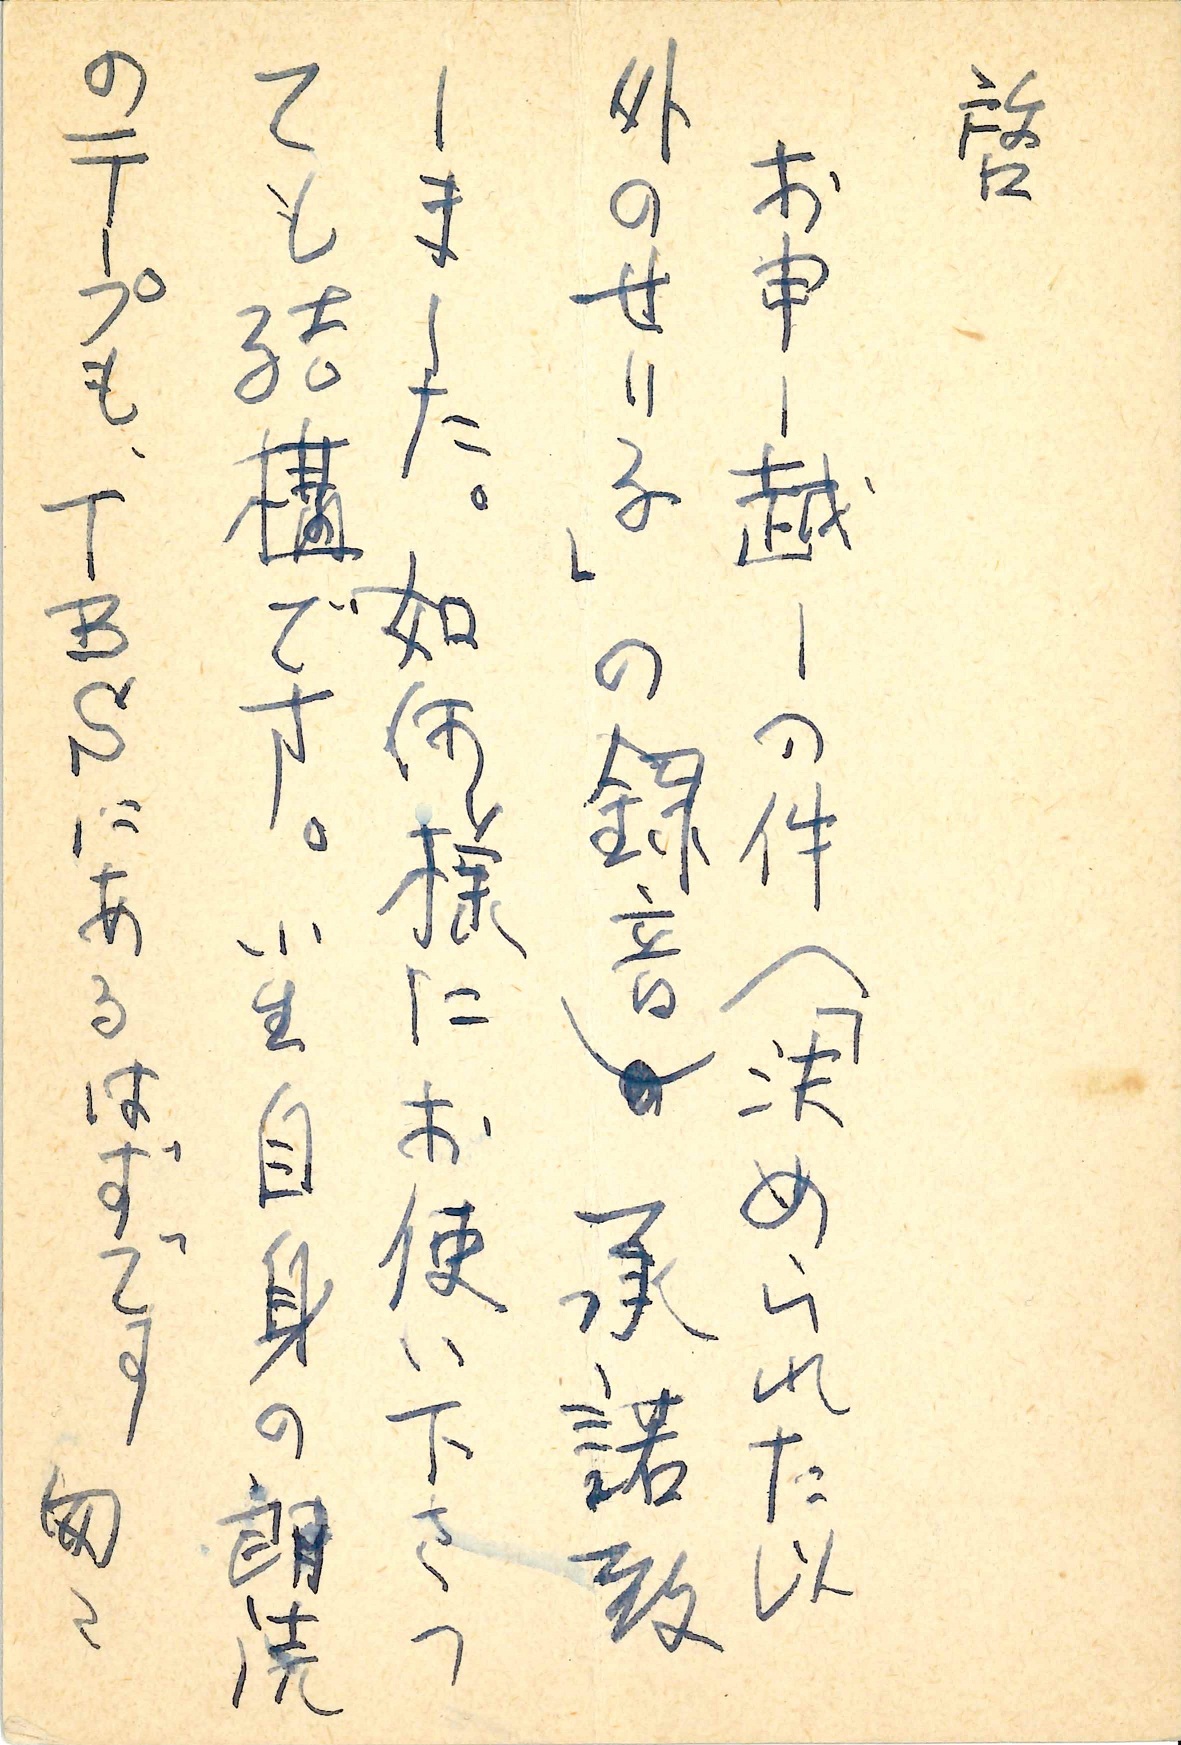 啓
お申し越しの件(「決められた以
外のせりふ」の録音) 承諾致
しました。如何様にお使い下さっ
ても結構です。小生自身の朗読
のテープも、TBSにあるはずです 匆々